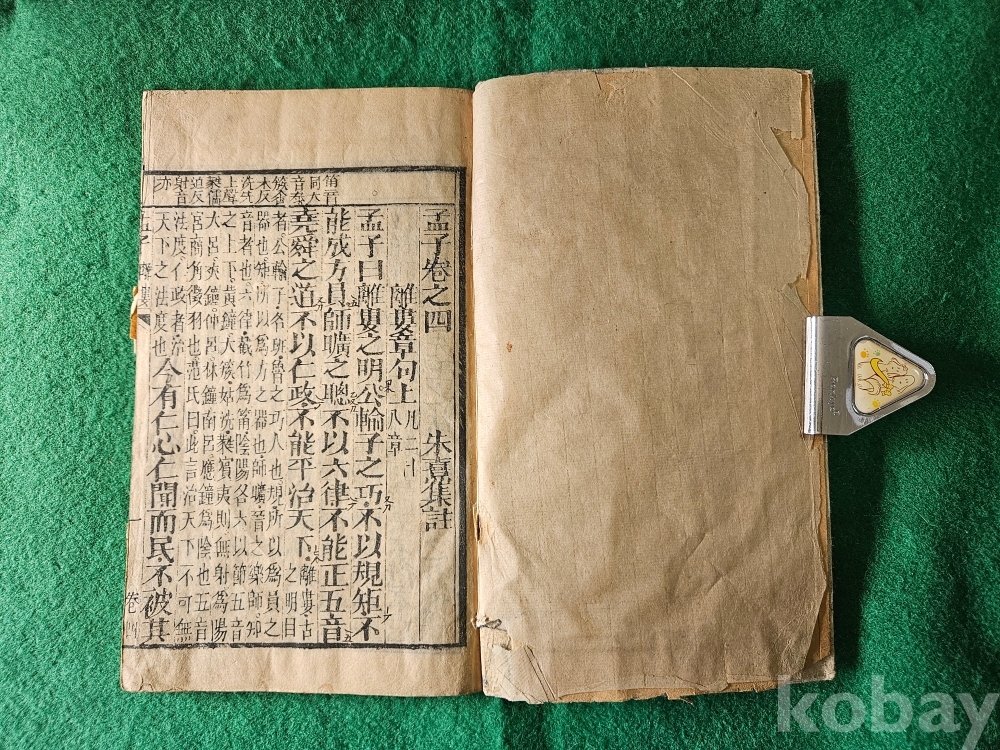 孟子卷之四 朱熹集註
離婁章句上 凡二十
八章
孟子曰離婁之明公輸子之巧不以規矩不
能成方員師曠之聰不以六律不能正五音
堯舜之道不以仁政不能平治天下 離婁古
之明目
者公輸子名班魯之巧人也規所以爲員之
器也矩所以爲方之器也師曠晉之樂師知
音者也六律截竹爲筩陰陽各六以節五音
之上下黃鐘大簇姑洗蕤賓夷則無射爲陽
大呂夾鐘仲呂林鐘南呂應鐘爲陰也五音
宮商角徵羽也范氏曰此言治天下不可無
法度仁政者治
天下之法度也 今有仁心仁聞而民不被其
筩音
同大
音泰
簇千
木反
洗
上聲
蕤儒
追反
射音
亦
孟子 離婁 一 卷四
kobay